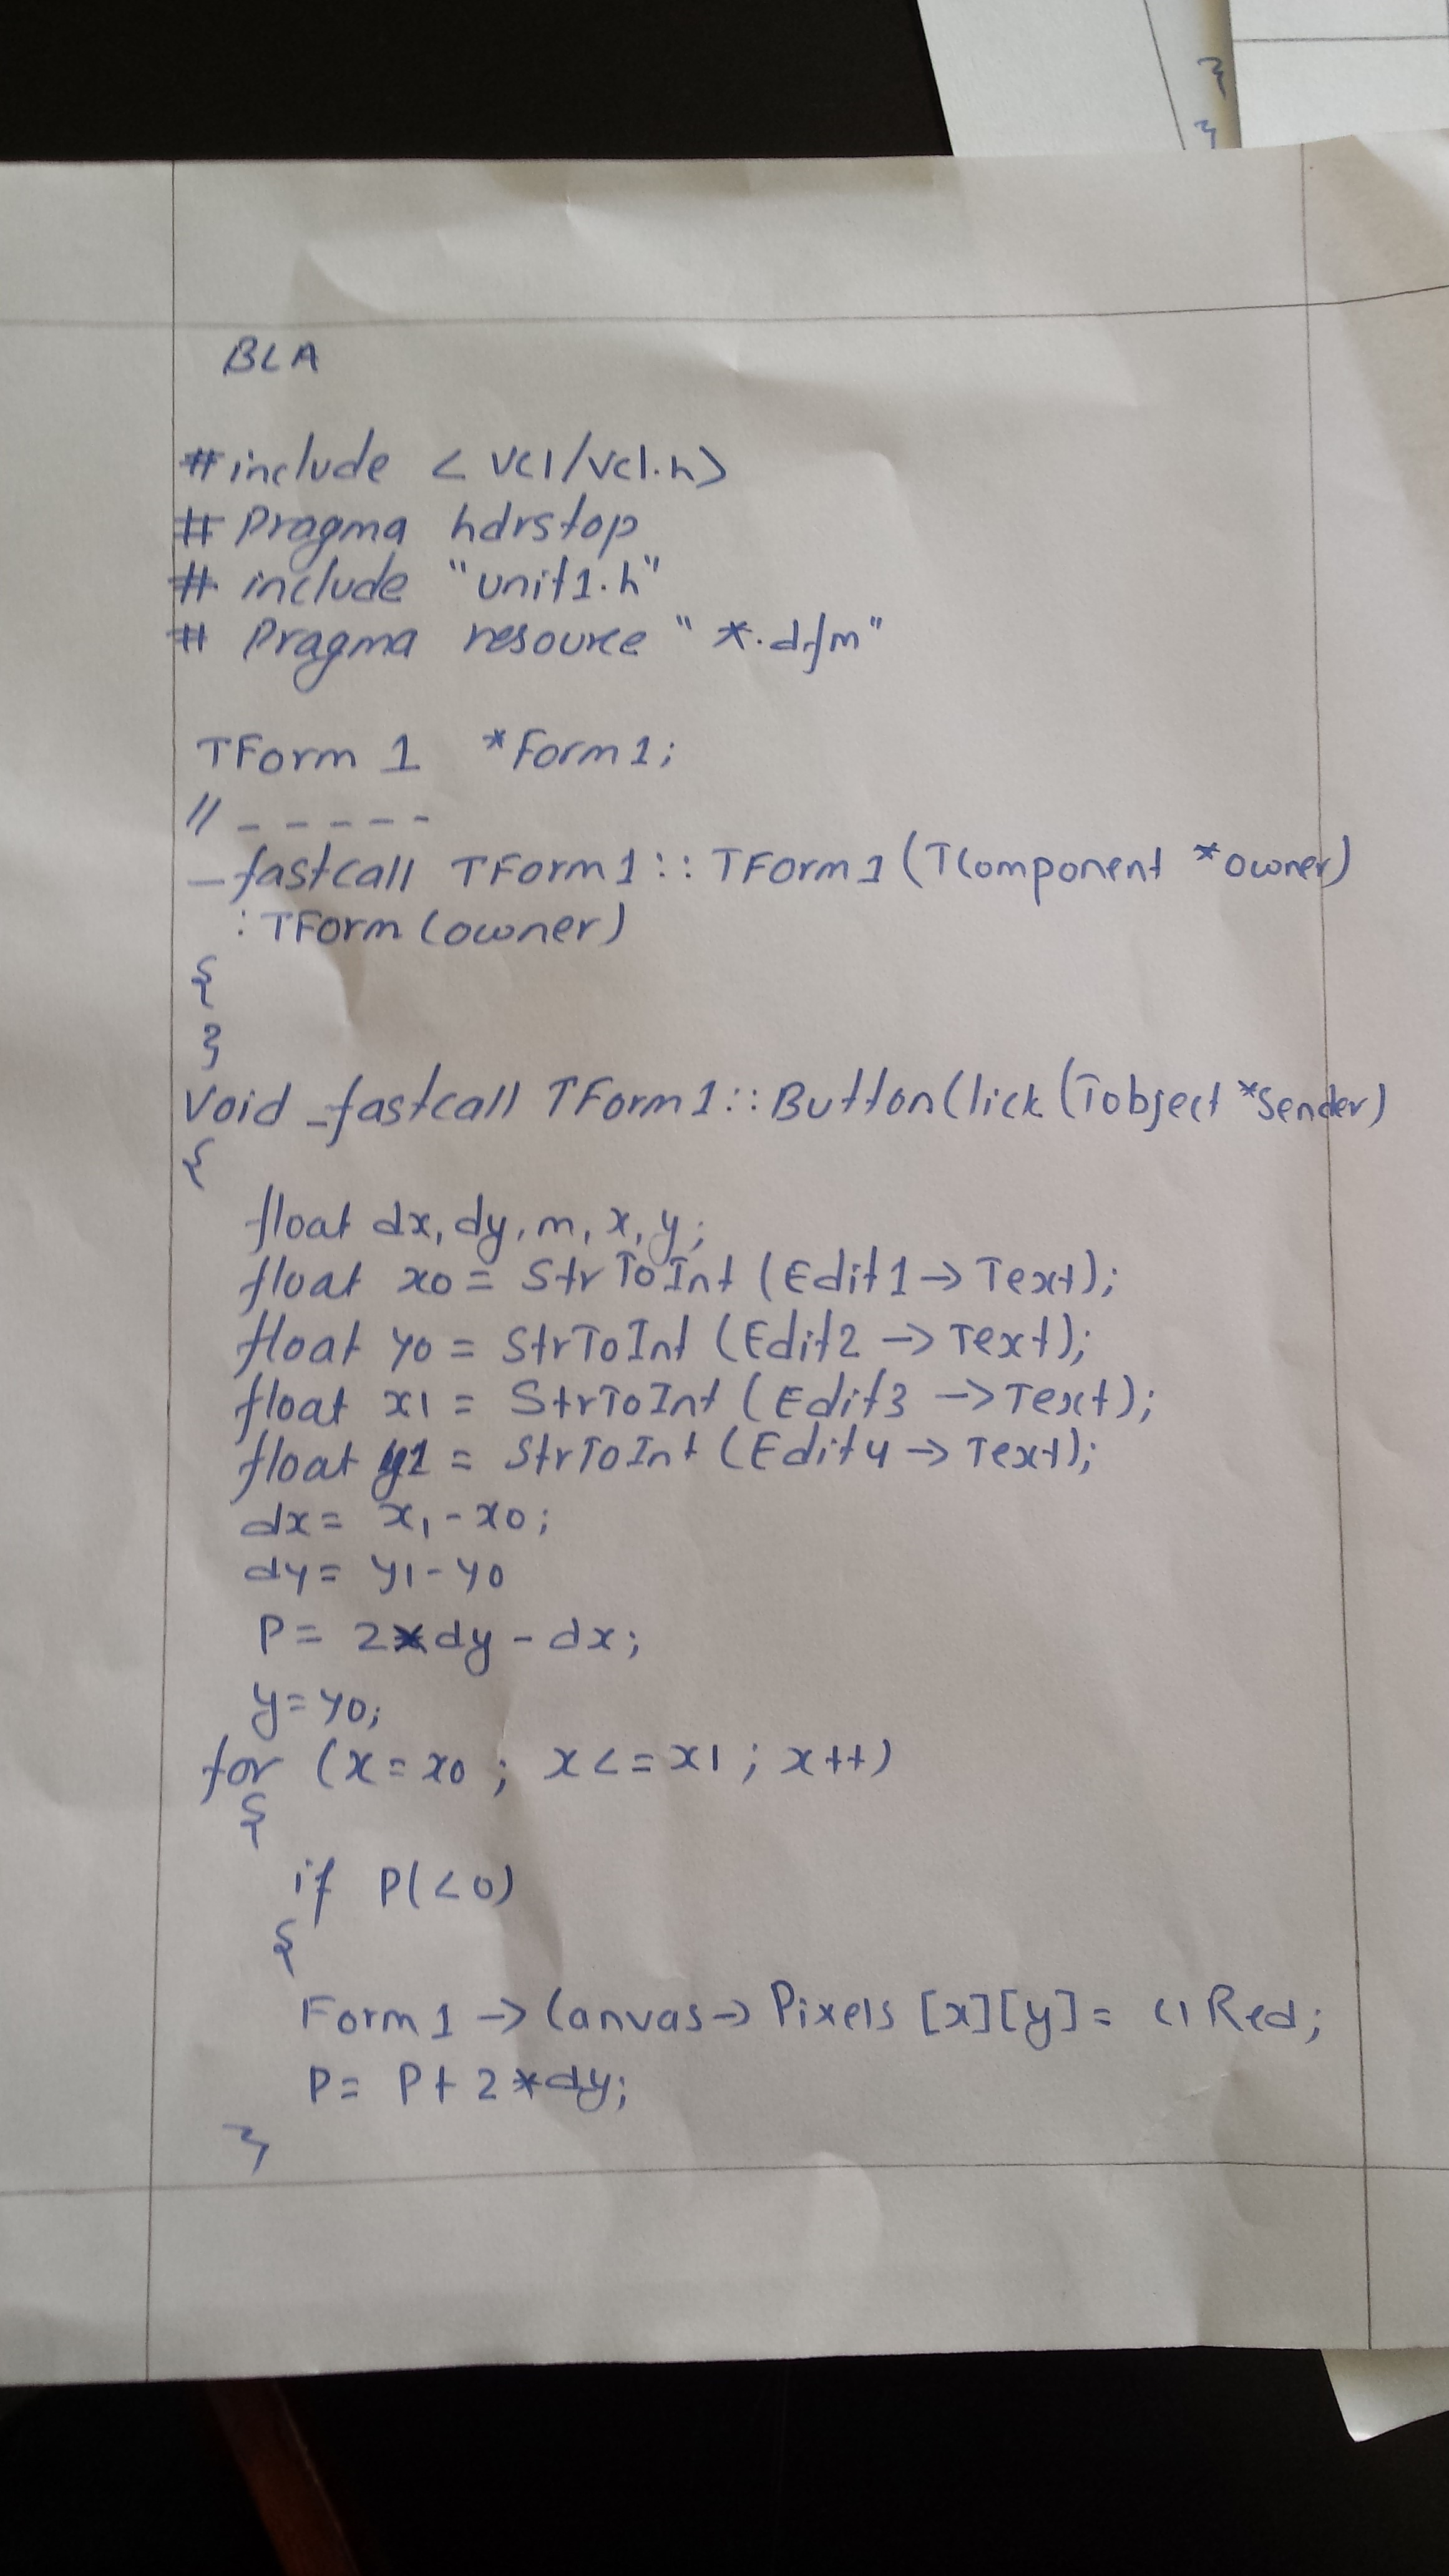 BLA
#include < vcl/vcl.h>
# Pragma hdrstop
# include "unit1.h"
# Pragma resource "*.dfm"
TForm 1 *Form1;
// - - - - -
_fastcall TForm1:: TForm1 (TComponent *owner)
: TForm (owner)
{
}
Void _fastcall TForm1:: ButtonClick (Tobject *Sender)
{
float dx, dy, m, x, y;
float x0 = StrToInt (Edit1 -> Text);
float y0 = StrToInt (Edit2 -> Text);
float x1 = StrToInt (Edit3 -> Text);
float y1 = StrToInt (Edit4 -> Text);
dx = x1 - x0;
dy = y1 - y0
P = 2*dy - dx;
y = y0;
for (x = x0 ; x <= x1 ; x++)
{
if P(<0)
{
Form1 -> Canvas -> Pixels [x][y] = clRed;
P = P + 2*dy;
}
}
}